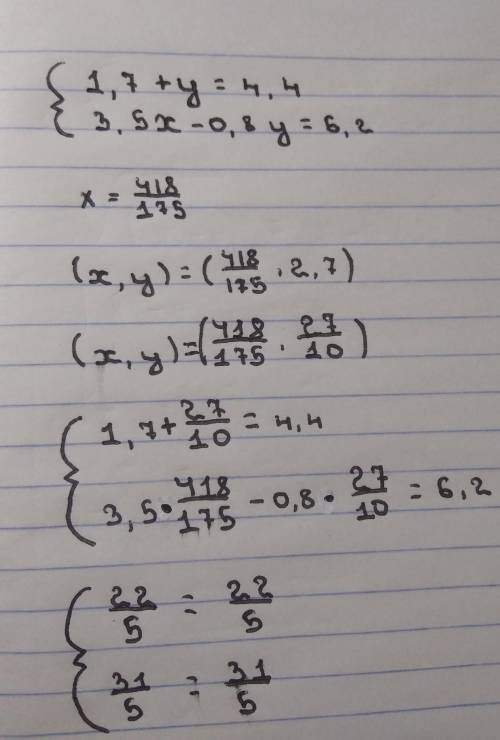 1,7 + y = 4,4
3,5x - 0,8y = 6,2
x = 418/175
(x, y) = (418/175 . 2,7)
(x, y) = (418/175 . 27/10)
1,7 + 27/10 = 4,4
3,5 • 418/175 - 0,8 • 27/10 = 6,2
22/5 = 22/5
31/5 = 31/5